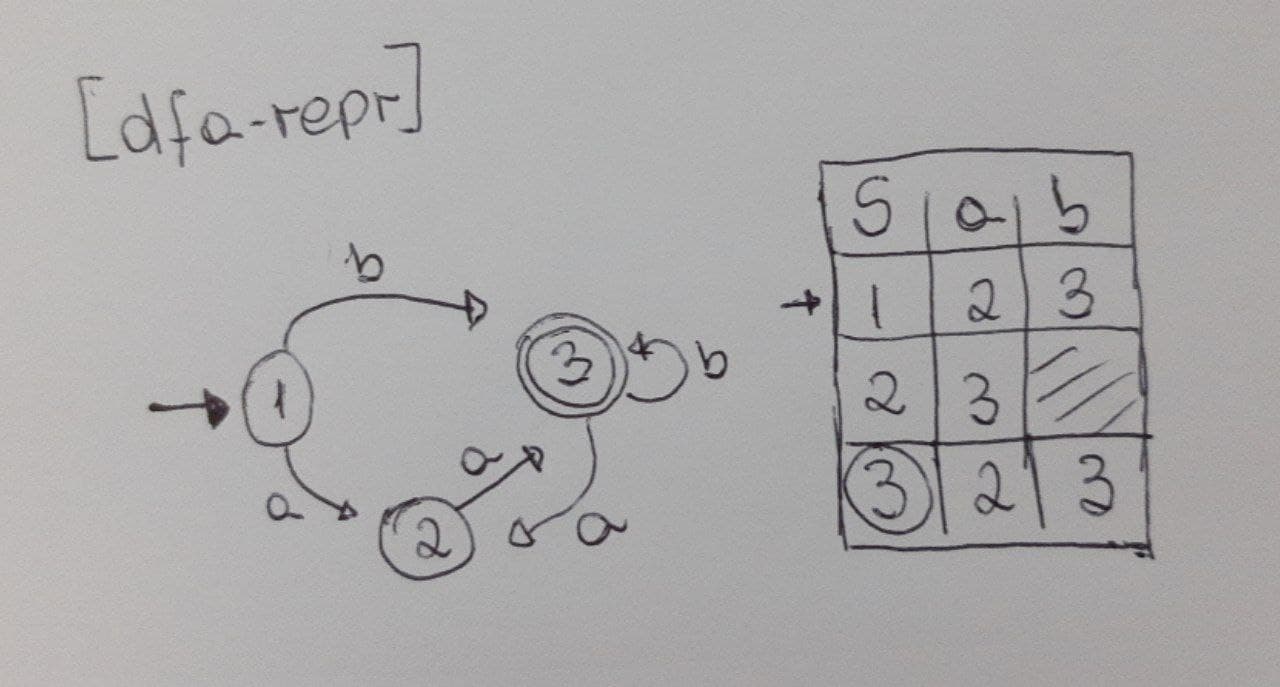 [dfa-repr]
b
1
3
b
a
a
2
a
S a b
1 2 3
2 3
3 2 3